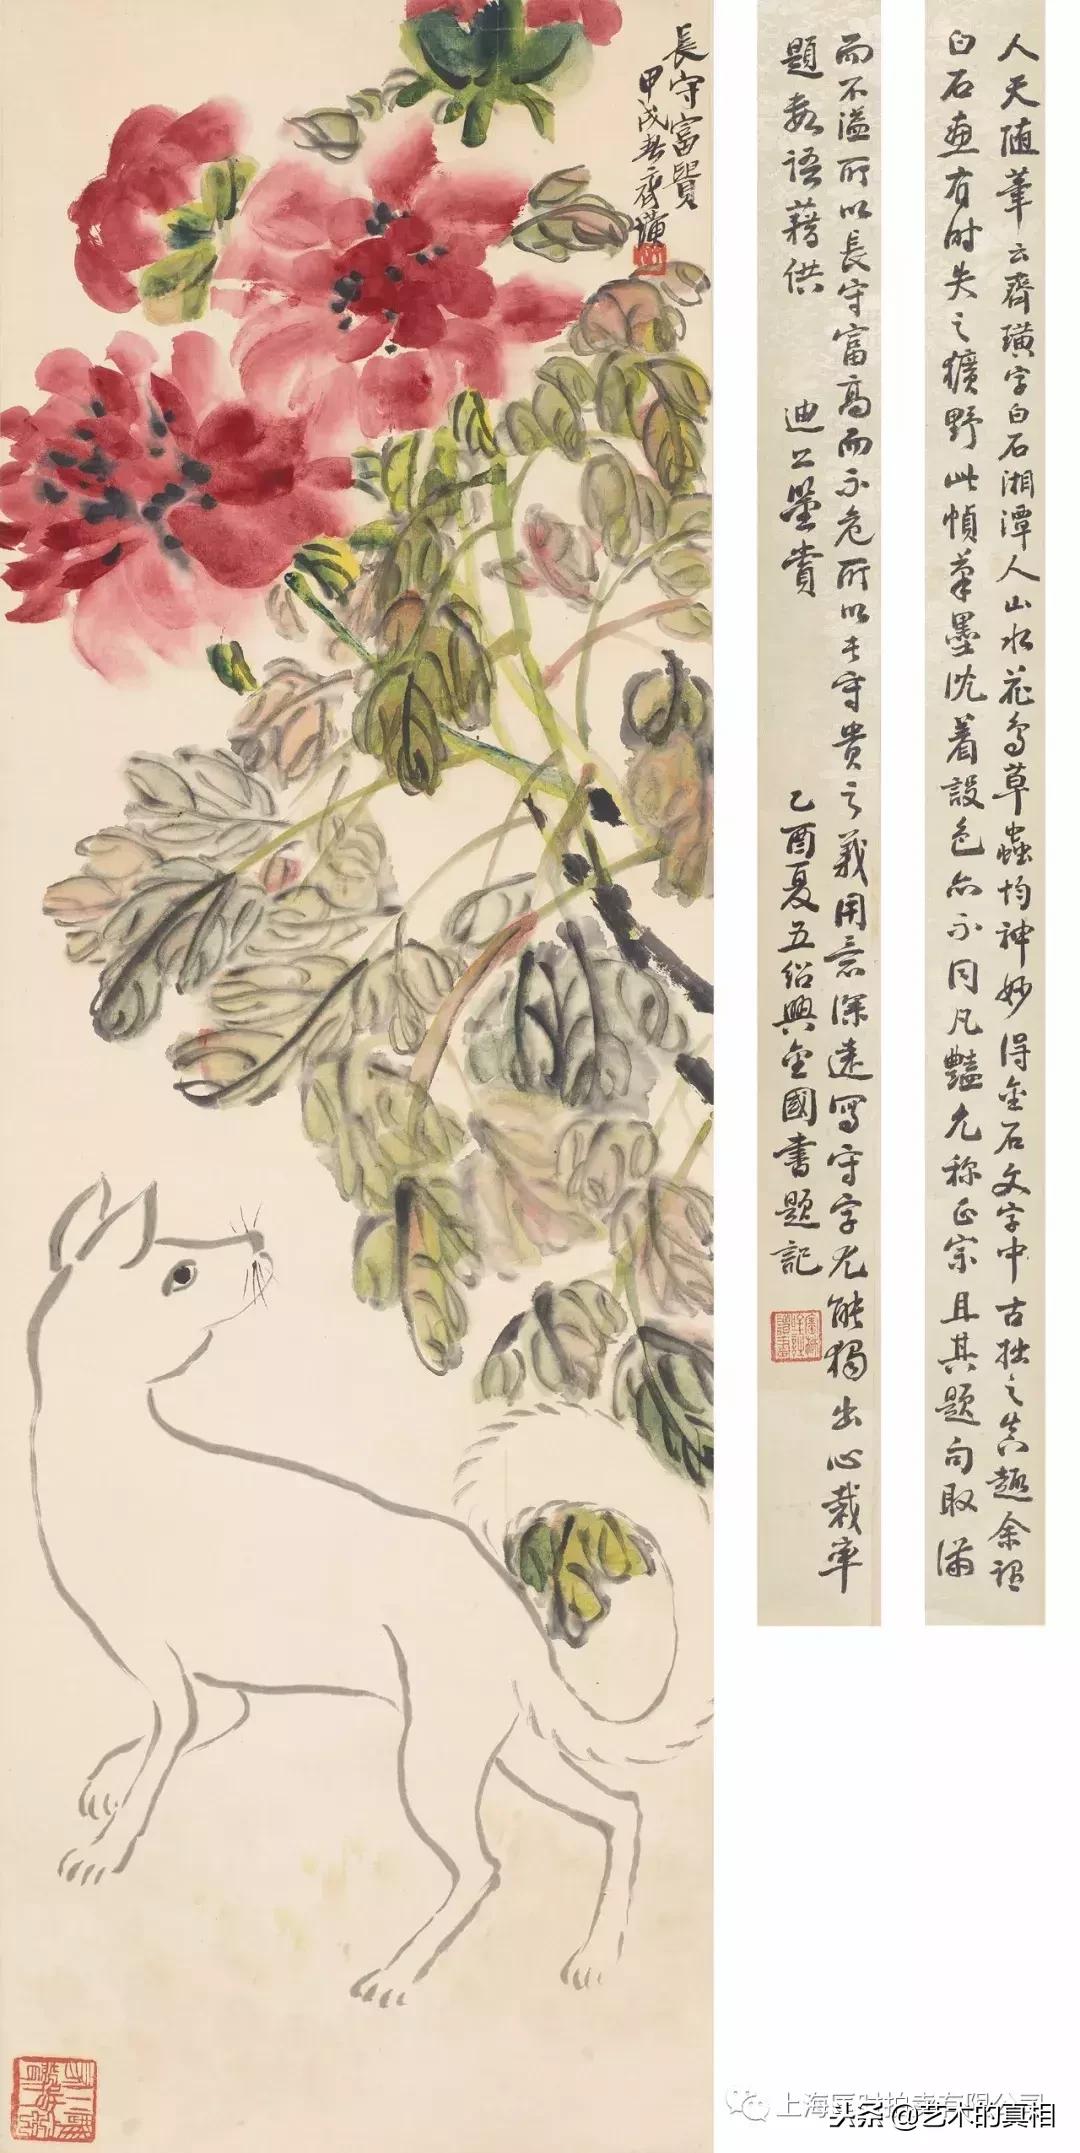 長守富貴
甲戌春齊璜
人天随筆云齊璜字白石湘潭人山水花鳥草蟲均神妙得金石文字中古拙之真趣余謂
白石畫有時失之獷野此幀筆墨沈着設色亦不同凡豔允称正宗且其題句取滿
而不溢所以長守富高而不危所以長守貴之義用意深遠寫守字尤能獨出心裁率
題數語藉供
迪公鑒賞
乙酉夏五紹興金國書題記
上海匡时拍卖有限公司
头条@艺术的真相